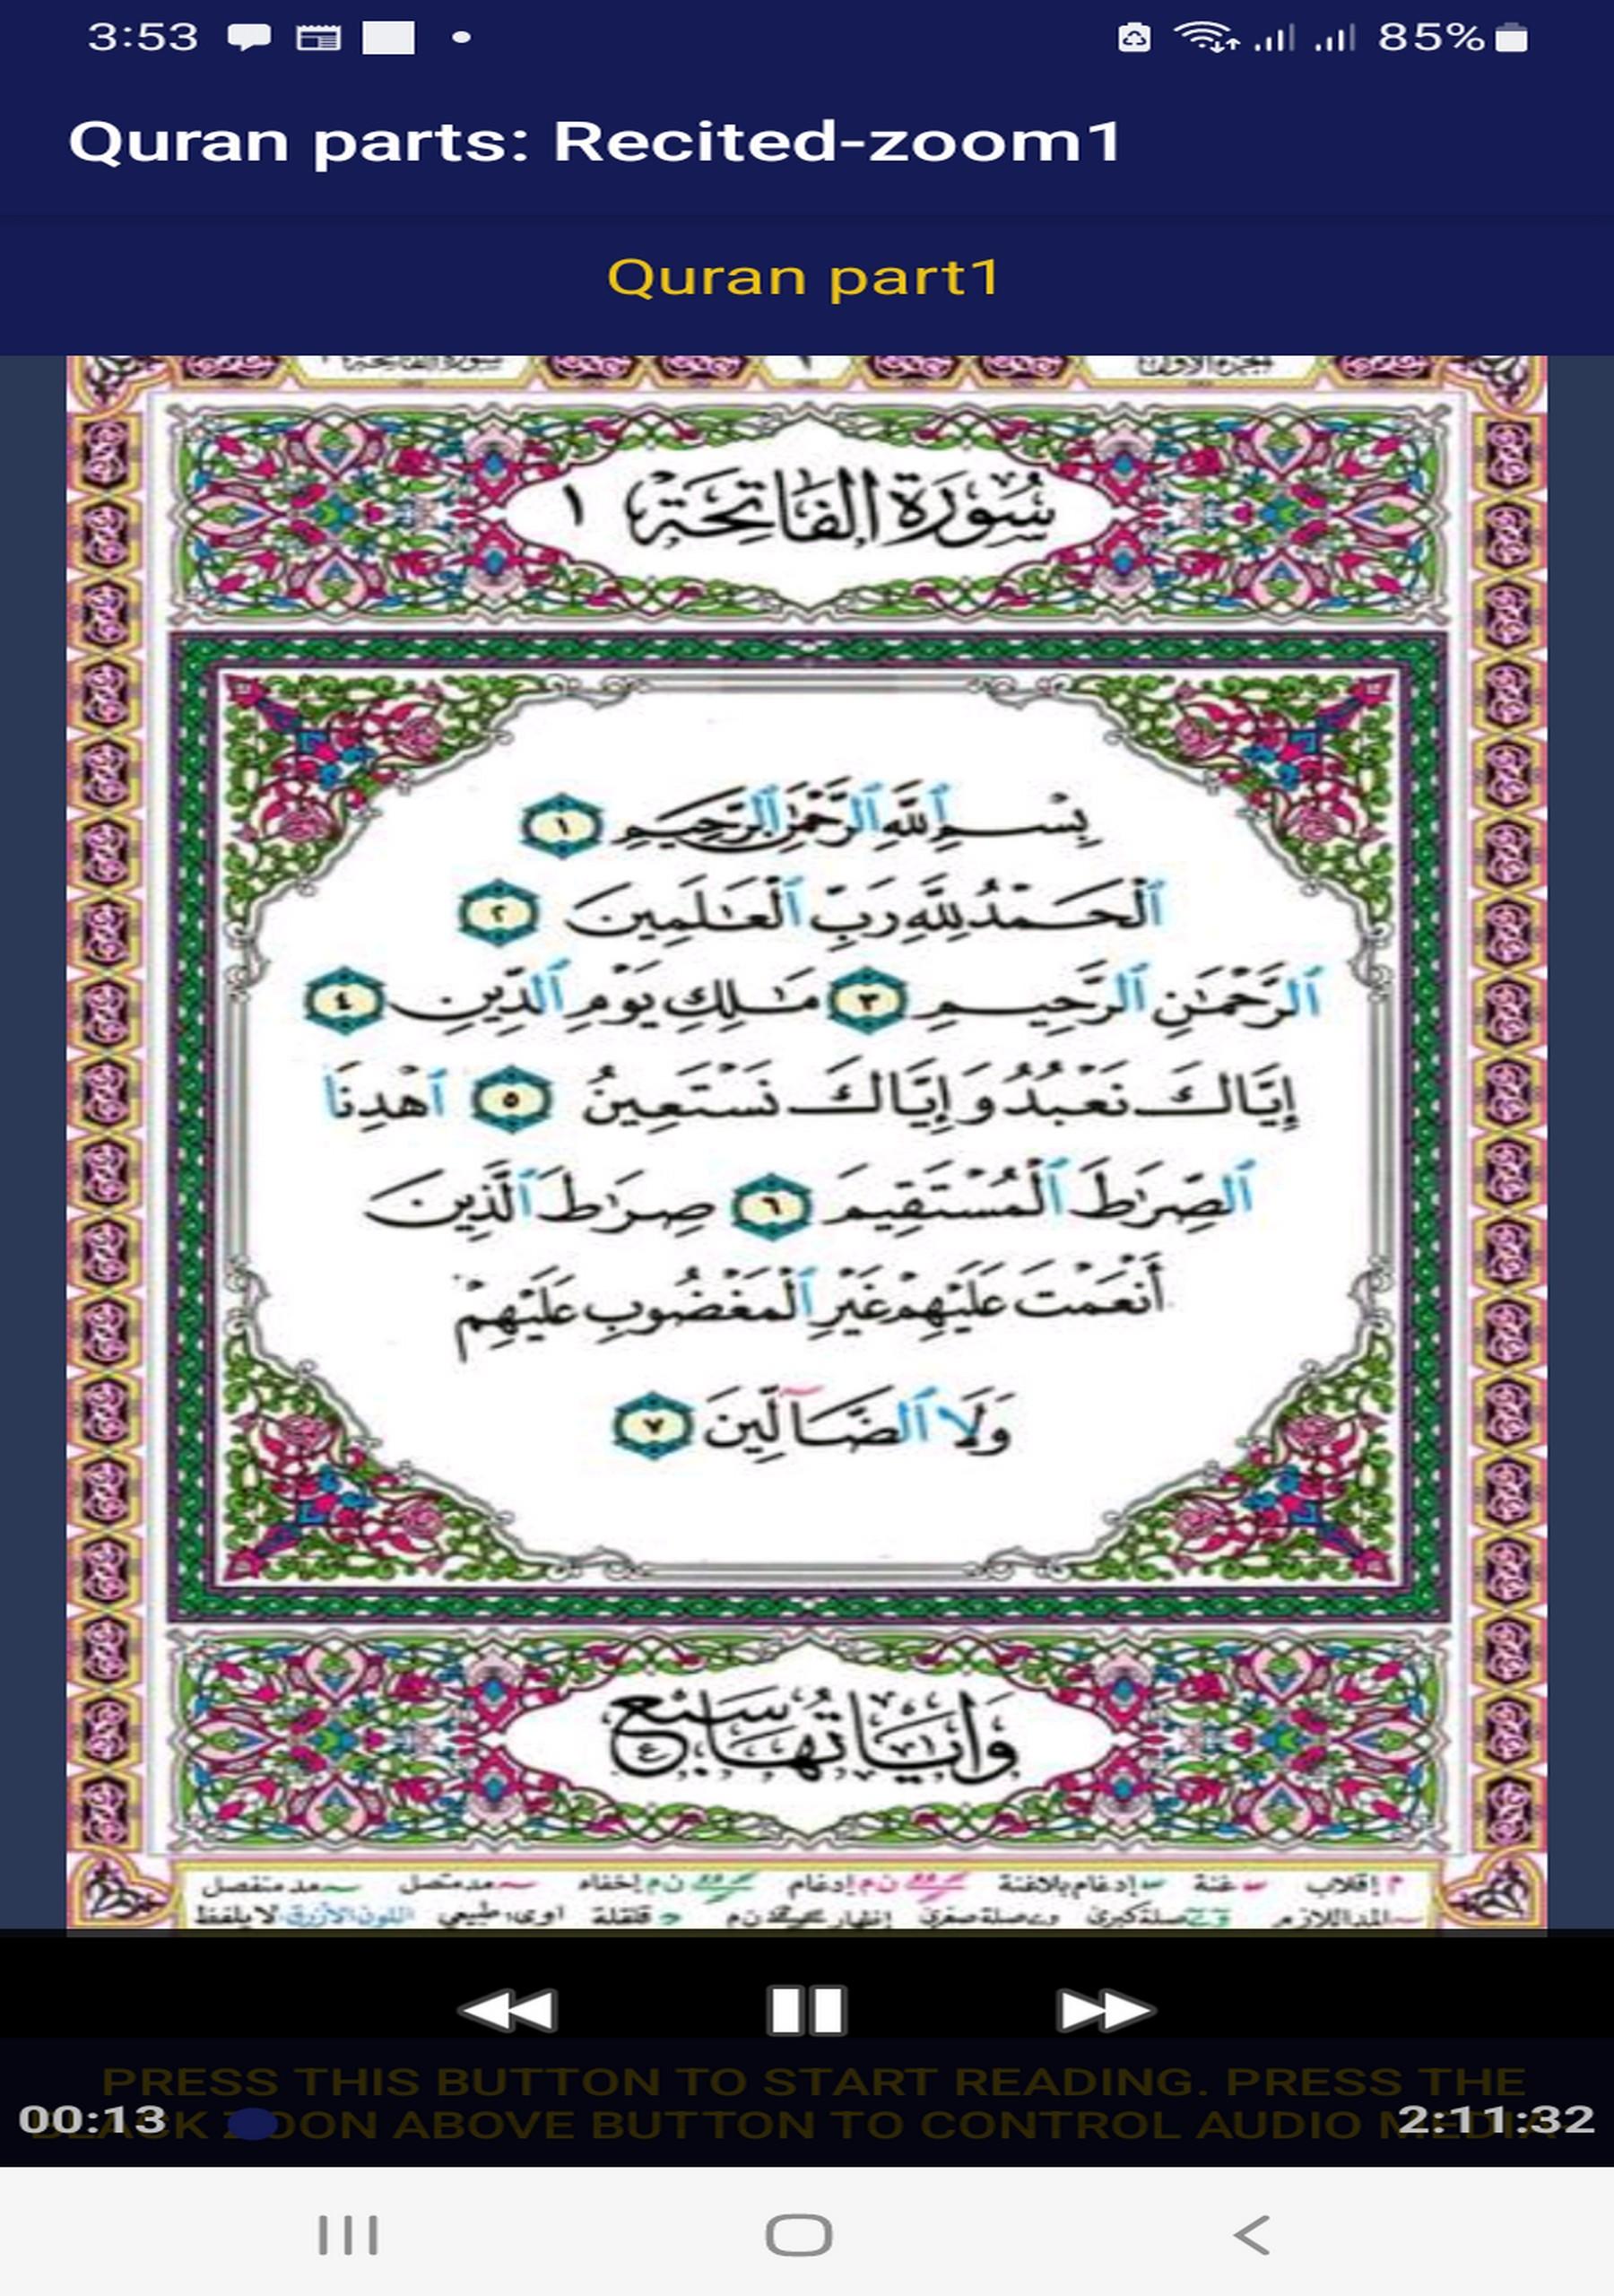 3:53
85%
Quran parts: Recited-zoom1
Quran part1
سُورَةُ الفَاتِحَةِ ١
بِسْمِ ٱللَّهِ ٱلرَّحْمَٰنِ ٱلرَّحِيمِ ١
ٱلْحَمْدُ لِلَّهِ رَبِّ ٱلْعَـٰلَمِينَ ٢
ٱلرَّحْمَٰنِ ٱلرَّحِيمِ ٣ مَـٰلِكِ يَوْمِ ٱلدِّينِ ٤
إِيَّاكَ نَعْبُدُ وَإِيَّاكَ نَسْتَعِينُ ٥ ٱهْدِنَا
ٱلصِّرَٰطَ ٱلْمُسْتَقِيمَ ٦ صِرَٰطَ ٱلَّذِينَ
أَنْعَمْتَ عَلَيْهِمْ غَيْرِ ٱلْمَغْضُوبِ عَلَيْهِمْ
وَلَا ٱلضَّآلِّينَ ٧
وَآيَاتُهَا سَبْعٌ
م إقلاب غنة إدغام بلاغنة ن م إدغام مد متصل ن م إخفاء مد منفصل
المد اللازم صلة كبرى صلة صغرى إظهار ن م قلقلة اوى: طبيعي اللون الأزرق لا يلفظ
PRESS THIS BUTTON TO START READING. PRESS THE
00:13 ON ABOVE BUTTON TO CONTROL AUDIO 2:11:32